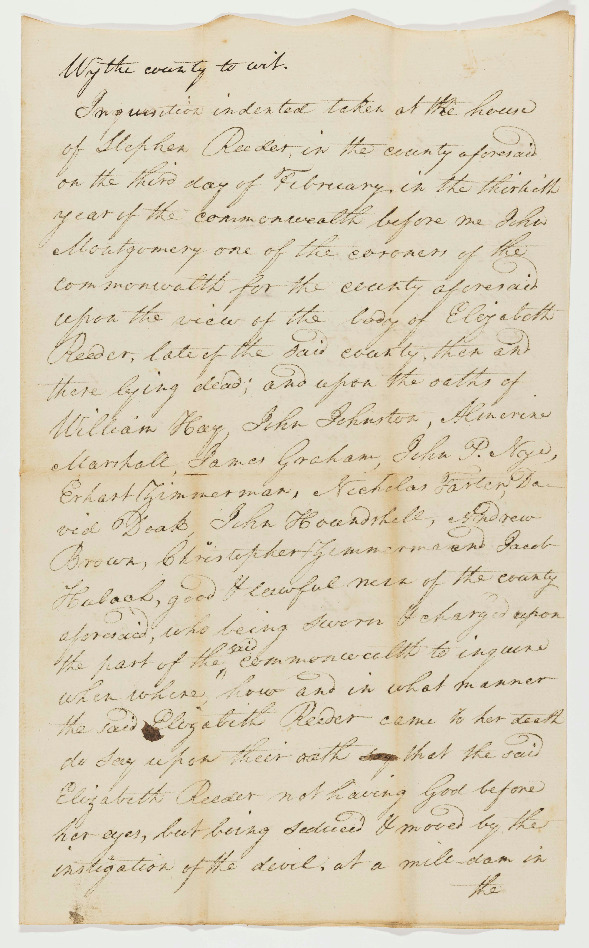 Wythe county to wit.
Inquisition indented taken at the house
of Stephen Reeder, in the county aforesaid
on the third day of February, in the thirtieth
year of the commonwealth before me John
Montgomery one of the coroners of the
commonwalth for the county aforesaid
upon the view of the body of Elizabeth
Reeder, late of the said county, then and
there lying dead; and upon the oaths of
William Hay, John Johnston,
Marshall, James Graham, John P. Nye,
Erhart Zimmerman, Nicholas Da-
vid Doak John Houndshell, Andrew
Brown, Christopher Zimmerman and Jacob
good & lawful men of the county
aforesaid, who being sworn & charged upon
the part of the said commonwealth to inquire
when where, how and in what manner
the said Elizabeth Reeder came to her death
do say upon their oath say that the said
Elizabeth Reeder not having God before
her eyes, but being seduced & moved by the
instigation of the devil, at a mill-dam in
the